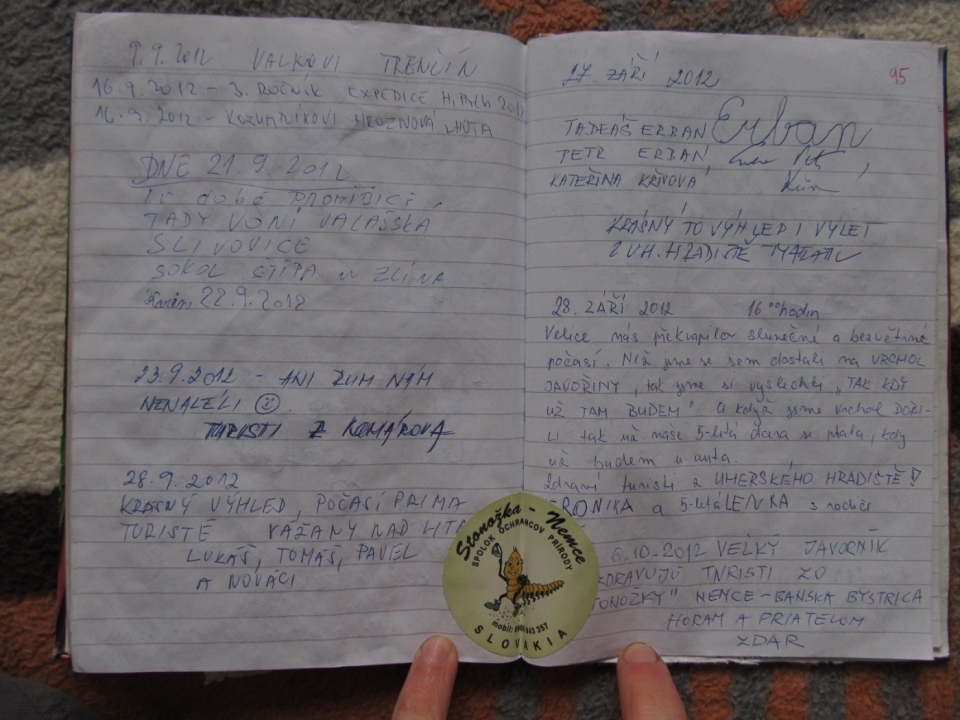 9.9.2012 VALKOVI TRENČÍN
16.9.2012 - 3. ROČNÍK EXPEDICE 2012
16.9.2012 - HROZNOVÁ LHOTA
DNE 21.9.2012
TADY VONÍ VALAŠSKÁ
SLIVOVICE
SOKOL ŠTÍPA u ZLÍNA
22.9.2012
23.9.2012 - ANI ZUM NÁM
NENALÉLI ☺
TURISTI Z KOMÁROVA
28.9.2012
KRÁSNÝ VÝHLED, POČASÍ PRIMA
TURISTÉ VÁŽANY NAD LIT
LUKÁŠ, TOMÁŠ, PAVEL
A NOVÁCI
95
27. ZÁŘÍ 2012
TADEÁŠ ERBAN Erban
PETR ERBAN
KATEŘINA KŘIVOVÁ
KRÁSNÝ TO VÝHLED I VÝLET
Z UH. HRADIŠTĚ
28. ZÁŘÍ 2012 16⁰⁰ hodin
Velice nás překvapilo slunečné a bezvětrné
počasí. Než jsme se sem dostali na VRCHOL
JAVOŘINY, tak jsme si vyslechli „TAK KDY
UŽ TAM BUDEM" a když jsme vrchol DOBI-
LI tak už naše 5-letá dcera se ptala, kdy
už budem u auta.
Zdraví turisti z UHERSKÉHO HRADIŠTĚ!
ERONIKA a 5-letá LENKA s rodiči
6.10-2012 VELKÝ JAVORNÍK
ZDRAVUJÚ TURISTI ZO
TONOŽKY" NEMCE - BANSKA BYSTRICA
HORAM A PRIATEĽOM
ZDAR
Stonožka - Nemce
SPOLOK OCHRANCOV PRÍRODY
mobil: 443 357
SLOVAKIA